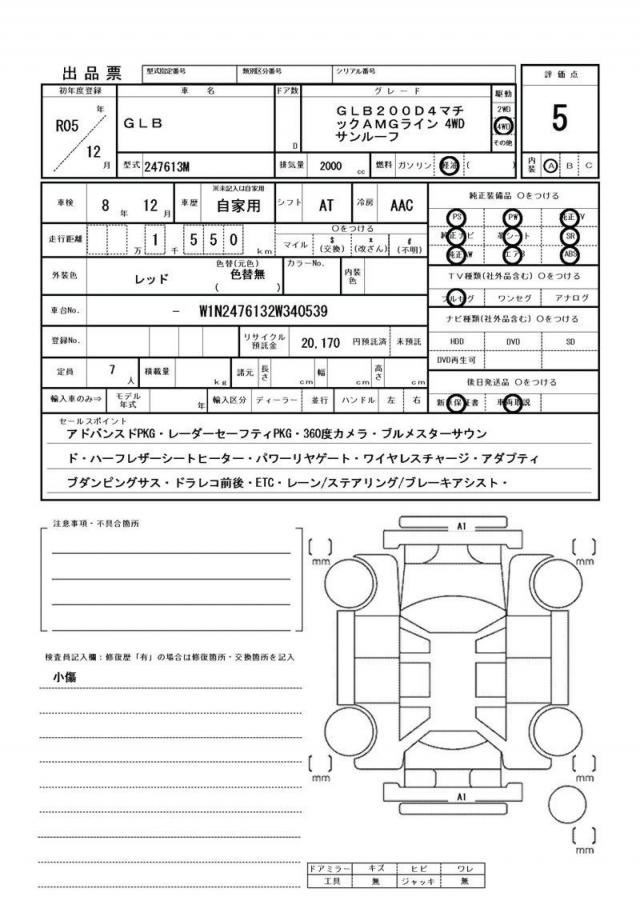 出品票 型式指定番号 類別区分番号 シリアル番号
評価点
5
内装 A B C
初年度登録 車名 ドア数 グレード 駆動
R05 年 12 月
GLB
D
GLB200D4マチ
ックAMGライン 4WD
サンルーフ
2WD
4WD
その他
型式 247613M 排気量 2000 cc 燃料 ガソリン 軽油 ( )
車検 8 年 12 月 車歴 ※未記入は自家用 自家用 シフト AT 冷房 AAC
走行距離 万 1 千 5 5 0 km
○をつける
マイル $(交換) x(改ざん) #(不明)
外装色 レッド 色替(元色) 色替無 ( ) カラーNo. 内装色
車台No. － W1N2476132W340539
登録No. リサイクル預託金 20,170 円預託済 未預託
定員 7 人 積載量 kg 諸元 長さ cm 幅 cm 高さ cm
輸入車のみ⇒ モデル年式 年 輸入区分 ディーラー 並行 ハンドル 左 右
純正装備品 ○をつける
PS PW 純正TV
純正ナビ 革シート SR
純正AW エアB ABS
TV種類(社外品含む) ○をつける
フルセグ ワンセグ アナログ
ナビ種類(社外品含む) ○をつける
HDD DVD SD
DVD再生可
後日発送品 ○をつける
新車保証書 車両取説
セールスポイント
アドバンスドPKG・レーダーセーフティPKG・360度カメラ・ブルメスターサウン
ド・ハーフレザーシートヒーター・パワーリヤゲート・ワイヤレスチャージ・アダプティ
ブダンピングサス・ドラレコ前後・ETC・レーン/ステアリング/ブレーキアシスト・
注意事項・不具合箇所
検査員記入欄：修復歴「有」の場合は修復箇所・交換箇所を記入
小傷
A1
[ ] mm
[ ] mm
[ ] mm
[ ] mm
A1
[ ] mm
ドアミラー キズ ヒビ ワレ
工具 無 ジャッキ 無